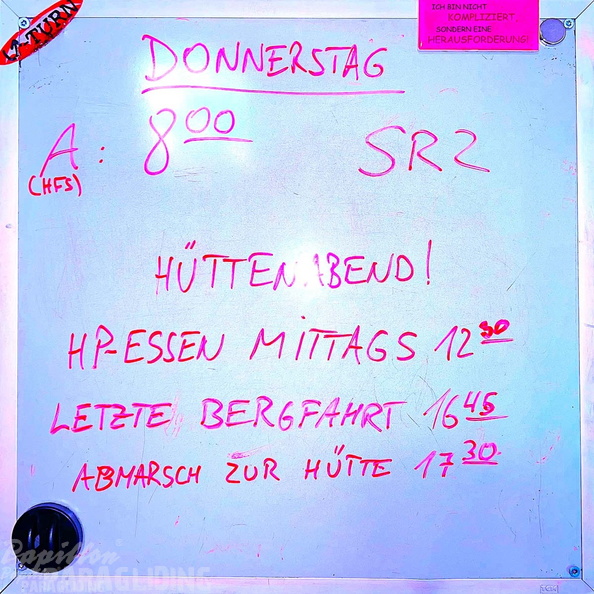 U-TURN
ICH BIN NICHT
KOMPLIZIERT,
SONDERN EINE
HERAUSFORDERUNG!
DONNERSTAG
A: 8 00 SR2
(HFS)
HÜTTENABEND!
HP-ESSEN MITTAGS 12 30
LETZTE BERGFAHRT 16 45
ABMARSCH ZUR HÜTTE 17 30
Papillon
PARAGLIDING